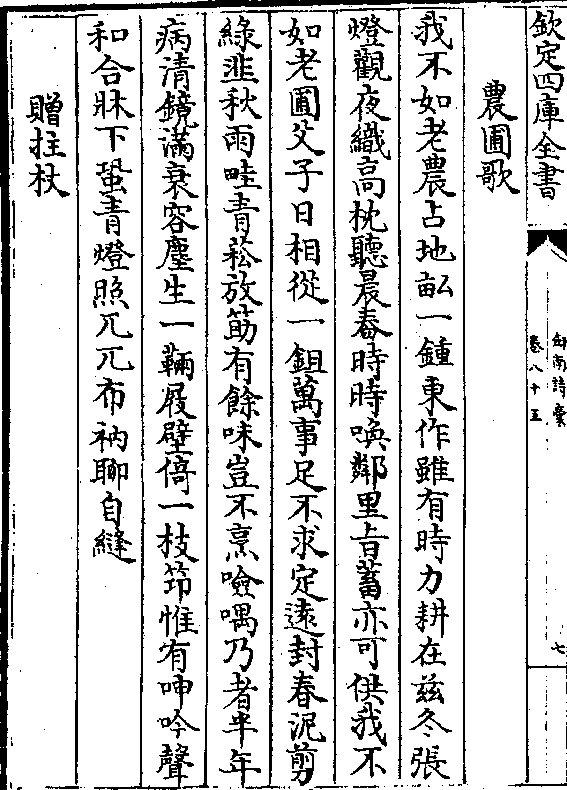 欽定四庫全書
劍南詩稾
卷八十五
七
農圃歌
我不如老農占地畝一鍾東作雖有時力耕在兹冬張
燈觀夜織高枕聽晨舂時時喚鄰里旨蓄亦可供我不
如老圃父子日相從一鉏萬事足不求定逺封春泥剪
綠韭秋雨畦青菘放筯有餘味豈不烹噞喁乃者半年
病清鏡滿衰容塵生一輛屐壁倚一枝笻惟有呻吟聲
和合牀下蛩青燈照兀兀布衲聊自縫
贈拄杖